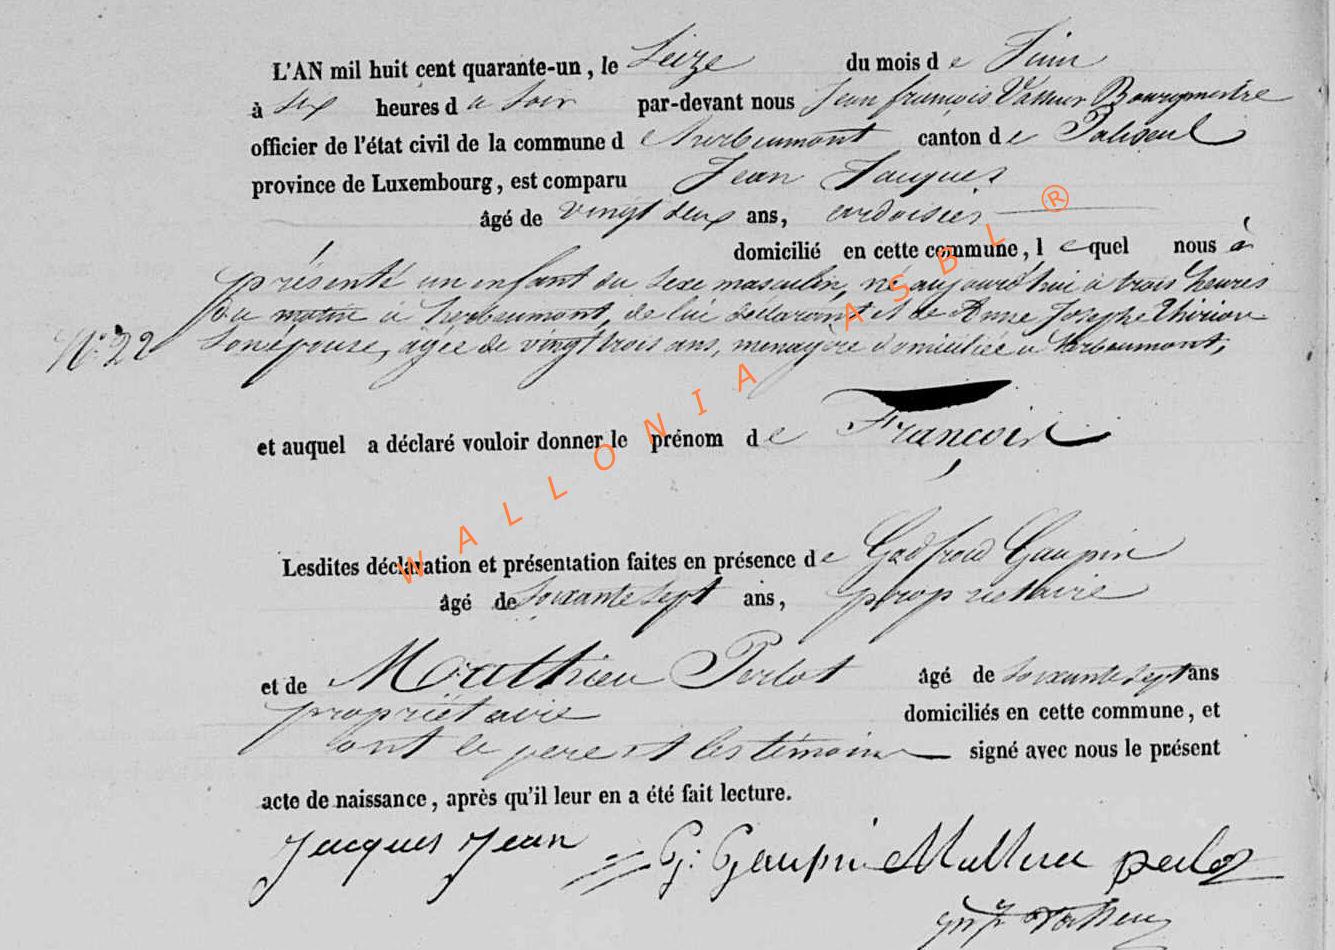 L'AN mil huit cent quarante-un, le Seize du mois de Juin
à six heures du Soir par-devant nous Jean françois Bourgmestre
officier de l'état civil de la commune d'herbeumont canton de Paliseul
province de Luxembourg, est comparu Jean Jacques
âgé de vingt deux ans, ardoisier
domicilié en cette commune, lequel nous à
présenté un enfant du Sexe masculin, né aujourd'hui à trois heures
Du matin à herbeumont, de lui déclarant et de Anne Josephe Thirion
N° 22 Son épouse, agée de vingt trois ans, menagère domiciliée à herbeumont,
et auquel a déclaré vouloir donner le prénom de François
Lesdites déclaration et présentation faites en présence de Godfroid Gaupin
âgé de Soixante Sept ans, proprietaire
et de Mathieu Perlot âgé de soixante sept ans
propriétaire domiciliés en cette commune, et
ont le pere et les témoins signé avec nous le présent
acte de naissance, après qu'il leur en a été fait lecture.
Jacques Jean G: Gaupin Mathieu perlot
WALLONIA ASBL ®